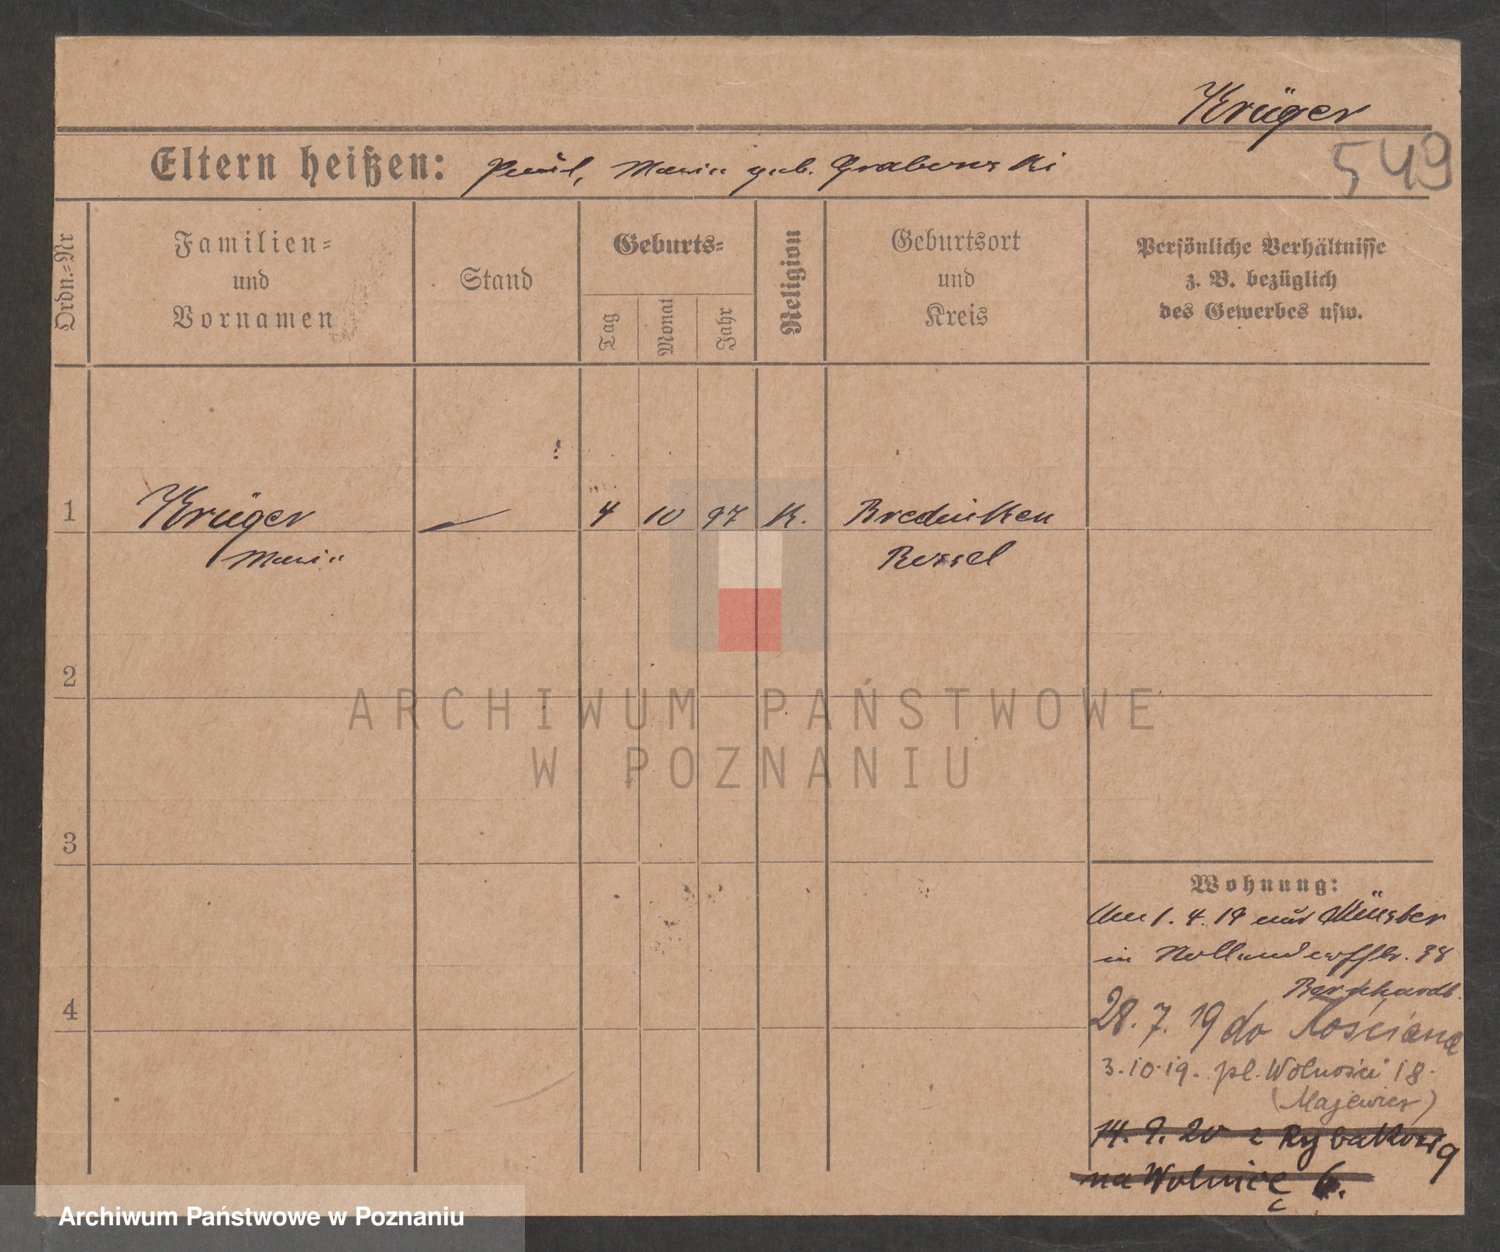 Krüger
549
Eltern heißen: Paul, Maria geb. Grabowski
Ordn.-Nr
Familien-
und
Vornamen
Stand
Geburts-
Tag
Monat
Jahr
Religion
Geburtsort
und
Kreis
Persönliche Verhältnisse
z. B. bezüglich
des Gewerbes usw.
1
Krüger
4 10 97 K.
Bredinken
Maria
Rössel
2
ARCHIWUM PAŃSTWOWE
W POZNANIU
3
Wohnung:
1. 4. 19 aus Münster
in
28. 7. 19 do Kościana
3.10.19. pl. Wolności 18.
4
14. 9. 20 z Rybakowie
na Wolnicę 6.
Archiwum Państwowe w Poznaniu